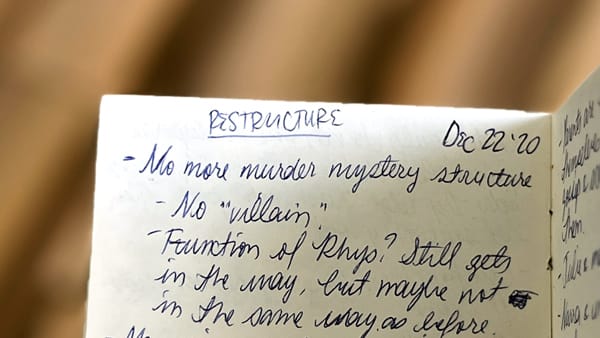 RESTRUCTURE
DEC 22 '20
- No more murder mystery structure
- No "villain"
- Function of Rhys? Still gets
in the way, but maybe not
in the same way as before.